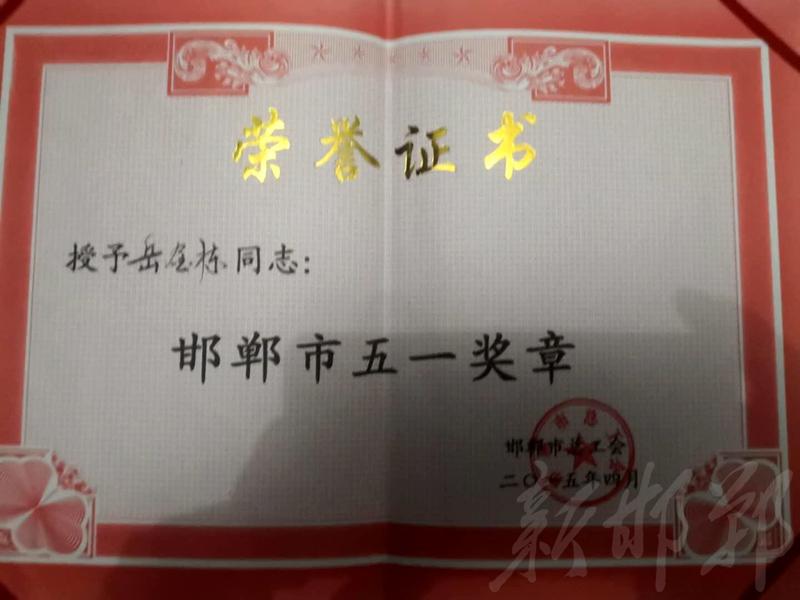 荣誉证书
授予岳金栋同志：
邯郸市五一奖章
邯郸市总工会
二〇一五年四月
新邯郸